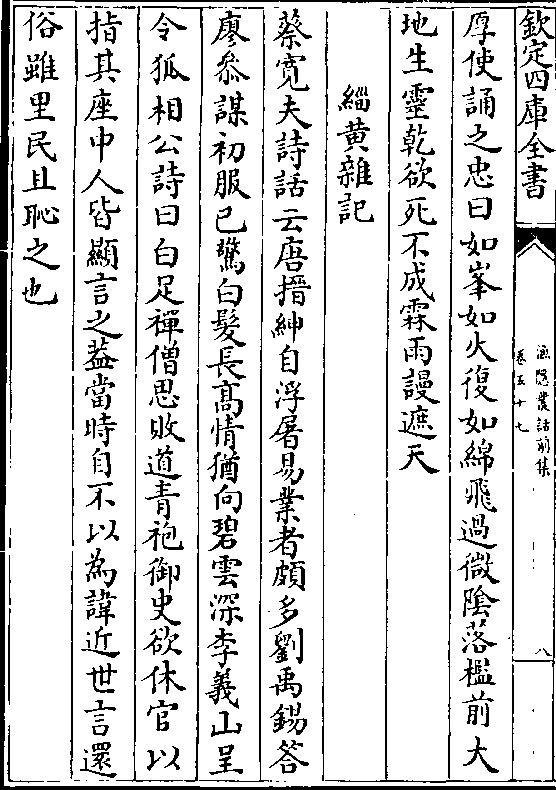 欽定四庫全書
漁隱叢話前集
卷五十七
八
厚使誦之忠曰如峯如火復如綿飛過微陰落檻前大
地生靈乾欲死不成霖雨謾遮天
緇黄雜記
蔡寛夫詩話云唐搢紳自浮屠易業者頗多劉禹錫答
廖叅謀初服已驚白髪長髙情猶向碧雲深李義山呈
令狐相公詩曰白足禪僧思敗道青袍御史欲休官以
指其座中人皆顯言之葢當時自不以為諱近世言還
俗雖里民且恥之也